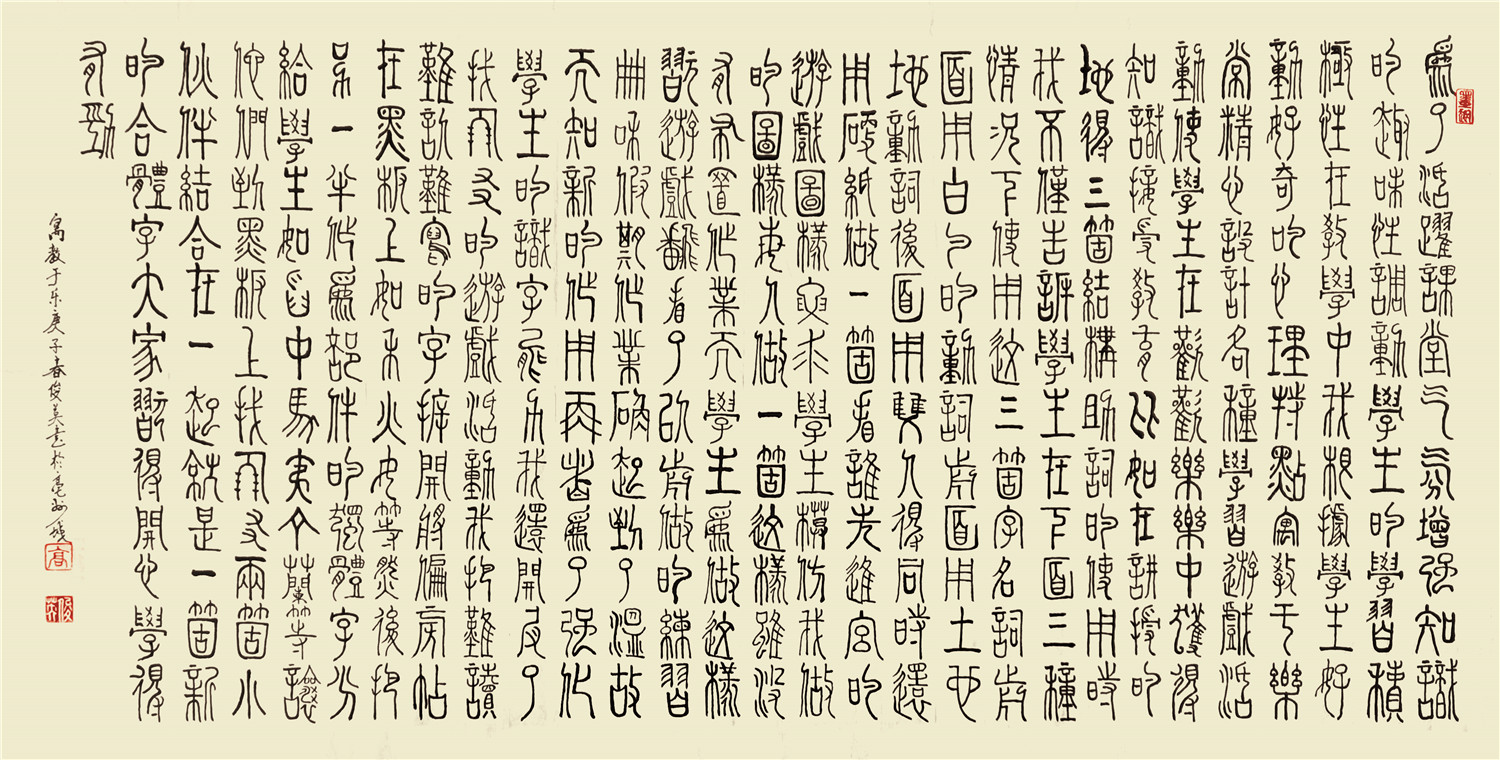 為了活躍課堂气氛增强知識
的趣味性調動學生的學習積
極性在教學中我根據學生好
動好奇的心理特點寓教于樂
常精心設計各種學習遊戲活
動使學生在歡歡樂樂中獲得
知識接受教育比如在講授的
地得三箇結構助詞的使用時
我不僅告訴學生在下面三種
情況下使用这三箇字名詞前
面用白勺的動詞前面用土也
地動詞後面用雙人得同時還
用硬紙做一箇看誰先進宮的
遊戲圖樣要求學生模仿我做
的圖樣每人做一箇这樣雖没
有布置作業而學生為做这樣
翫遊戲翻看了以前做的練習
冊和假期作業确起到了溫故
而知新的作用再者為了强化
學生的識字能力我還開展了
找朋友的遊戲活動我把難讀
難認難寫的字拆開將偏旁帖
在黑板上如禾火女等然後把
另一半作為部件的獨體字分
給學生如中馬等讓
他們到黑板上找朋友兩箇小
伙伴結合在一起就是一箇新
的合體字大家翫得開心學得
有勁
寓教于乐庚子春俊英書於亳州